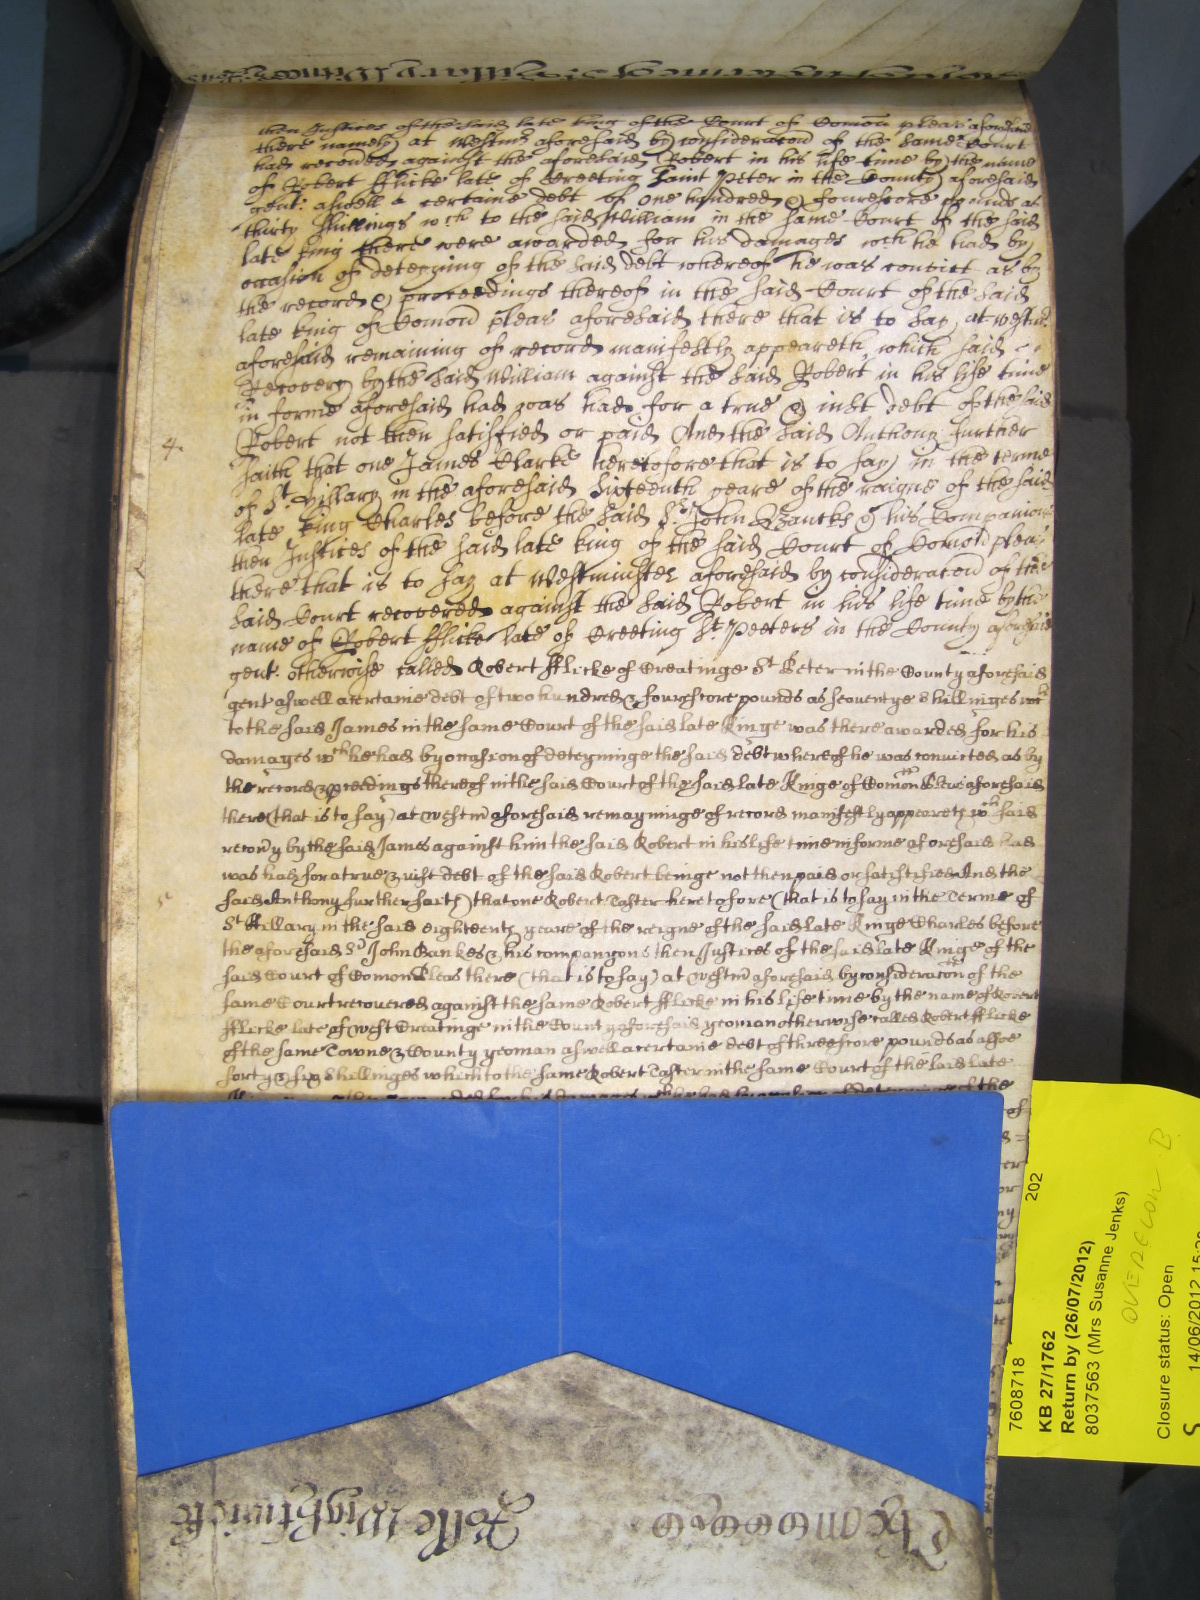 then Justices of the said late king of the Court of Comon pleas aforesaid
there namely at Westmr aforesaid by consideracon of the same Court
had recoved against the aforesaid Robert in his life time by the name
of Robert fflicke late of Creeting Saint Peter in the County aforesaid
gent: aswell a certaine debt of one hundred & fourescore pounds as
thirty shillings wch to the said William in the same Court of the said
late king there were awarded for his damages wch he had by
occasion of deteyning of the said debt whereof he was convict as by
the record & proceedings thereof in the said Court of the said
late king of Comon pleas aforesaid there that is to say at Westmr
aforesaid remaining of record manifestly appeareth which said
Recovery by the said William against the said Robert in his life time
in forme aforesaid had was had for a true & iust debt of the said
Robert not then satisfied or paid And the said Anthony further
4.
saith that one James Clarke heretofore that is to say in the terme
of St. Hillary in the aforesaid Sixteenth yeare of the raigne of the said
late king Charles before the said Sr John Bancks & his Companions
then Justices of the said late king of the said Court of Comon pleas
there that is to say at Westminster aforesaid by consideracon of the
said Court recovered against the said Robert in his life time by the
name of Robert fflicke late of Creeting St Peeters in the County aforesaid
gent: otherwise called Robert fflicke of Creatinge St Peter in the County aforesaid
gent aswell a certaine debt of two hundred & fourescore pounds as seoventye shillinges wch
to the said James in the same Court of the said late Kinge was there awarded for his
damages wch he had by occasion of deteyninge the said debt whereof he was convicted as by
the record & pceedings thereof in the said Court of the said late Kinge of Comon Pleas aforesaid
there (that is to say) at Westmr aforesaid remayninge of record manifestly appeareth wch said
recovy by the said James against him the said Robert in his life time in forme aforesaid had
was had for a true & iust debt of the said Robert beinge not then paid or satisfied And the
5
said Anthony further saith) that one Robert Taster heretofore (that is to say in the Terme of
St Hillary in the said eighteenth yeare of the reigne of the said late Kinge Charles before
the aforesaid Sr John Bankes & his companyons then Justices of the said late Kinge of the
said Court of Comon Pleas there (that is to say) at Westmr aforesaid by consideracon of the
same Court recovered against the same Robert fflicke in his life time by the name of Robert
fflicke late of West Creatinge in the County aforesaid yeoman otherwise called Robert fflicke
of the same Towne & County yeoman aswell a certaine debt of threescore pounds as alsoe
forty & six shillinges which to the same Robert Taster in the same Court of the said late
Rolle Wightwick
7608718
202
KB 27/1762
Return by (26/07/2012)
8037563 (Mrs Susanne Jenks)
Closure status: Open
14/06/2012